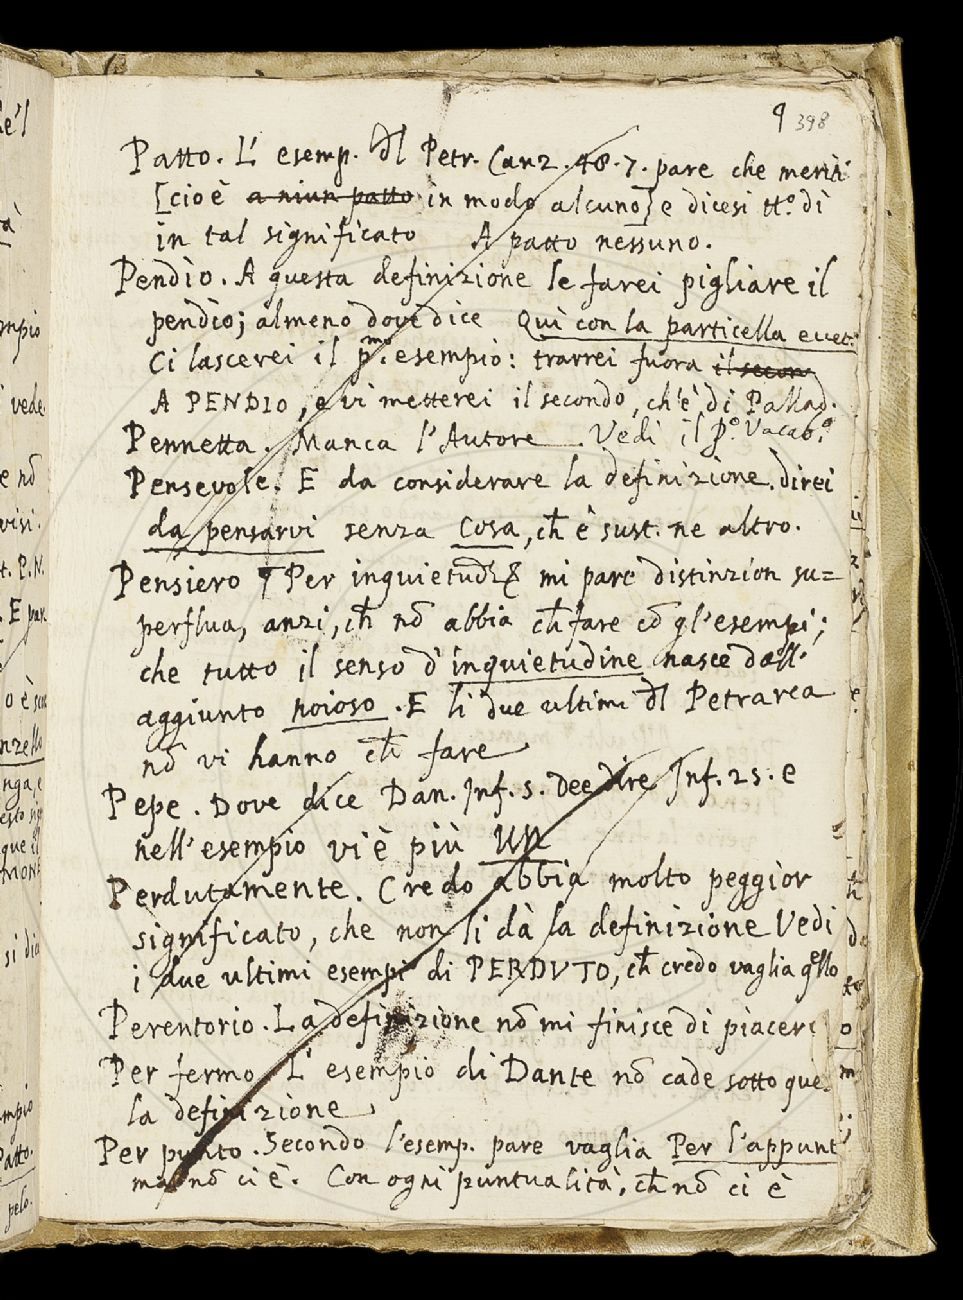 9 398
Patto. L' esemp. dl Petr. Canz. 48. 7. pare che meriti
[cioè a niun patto in modo alcuno] e dicesi tt.º dì
in tal significato A patto nessuno.
Pendìo. A questa definizione le farei pigliare il
pendìo; almeno dove dice Quì con la particella e vet.
Ci lascerei il pmo. esempio: trarrei fuora il secon
A PENDIO, e vi metterei il secondo, ch'è di Pallad.
Pennetta. Manca l'Autore. Vedi il P.º Vacab.º
Pensevole. E da considerare la definizione. direi
da pensarvi senza Cosa, ch̄ è sust. ne altro.
Pensiero ¶ Per inquietud. mi pare distinzion su=
perflua, anzi, ch̄ nō abbia ch̄ fare cō gl'esempi;
che tutto il senso d'inquietudine nasce dall'
aggiunto noioso. E li due ultimi dl Petrarca
nō vi hanno ch̄ fare
Pepe. Dove dice Dan. Inf. 5. Dee dire Inf. 25. e
nell'esempio vi è più UN
Perdutamente. Credo abbia molto peggior
significato, che non li dà la definizione Vedi
i due ultimi esempi di PERDVTO, ch̄ credo vaglia qello
Perentorio. La definizione nō mi finisce di piacere
Per fermo L' esempio di Dante nō cade sotto que
la definizione
Per punto. Secondo l'esemp. pare vaglia Per l'appunt
ma nō ci è. Con ogni puntualità, ch̄ nō ci è